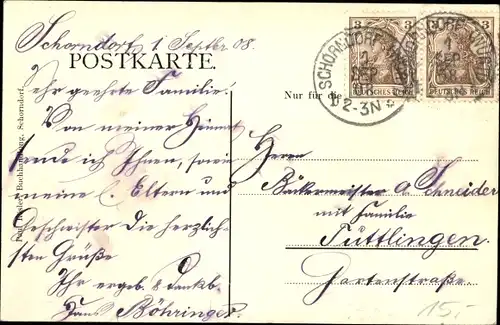 Schorndorf, 1 Septbr 08.
POSTKARTE.
Sehr geehrte Familie!
Von meiner Heimat
sende ich Ihnen, sowie
meine l. Eltern und
Geschwister die herzlich-
sten Grüße
Ihr ergeb. & dankb.
Hans Böhringer.
Buchhandlung, Schorndorf.
Nur für die
Herrn
Bäckermeister G. Schneider
mit Familie
Tuttlingen.
Gartenstraße.
3 3
DEUTSCHES REICH DEUTSCHES REICH
SCHORNDORF
1 SEP
2-3N
15,-